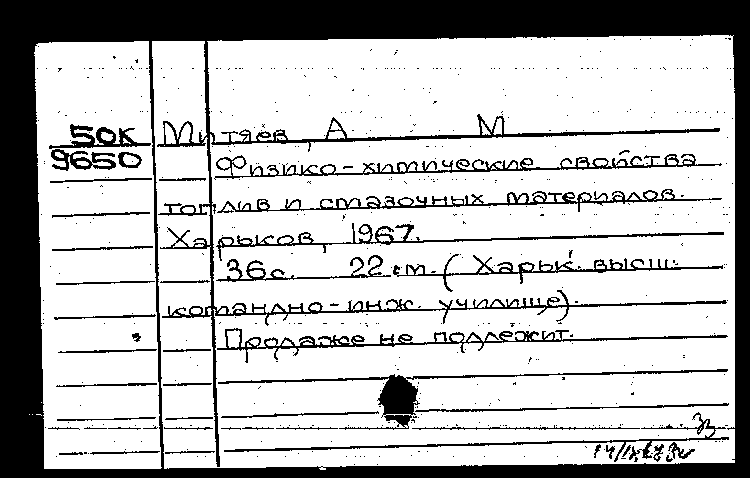 50К Митяев, А М
9650 Физико-химические свойства
топлив и смазочных материалов.
Харьков, 1967.
36с. 22 cm. (Харьк. высш.
командно-инж. училище).
Продаже не подлежит.
зз